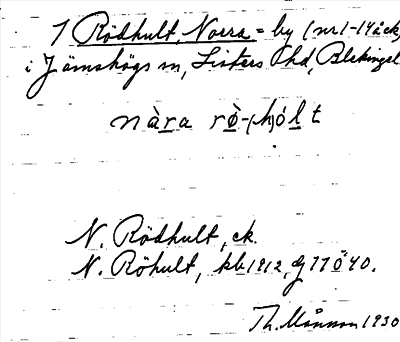 1 Rödhult, Norra = by (nr 1-14 åck)
i Jämshögs sn, Listers hd, Blekinge l
nàra rò-(h)ólt
N. Rödhult, ek.
N. Röhult, kb 1912, 1740.
Th. Månsson 1930